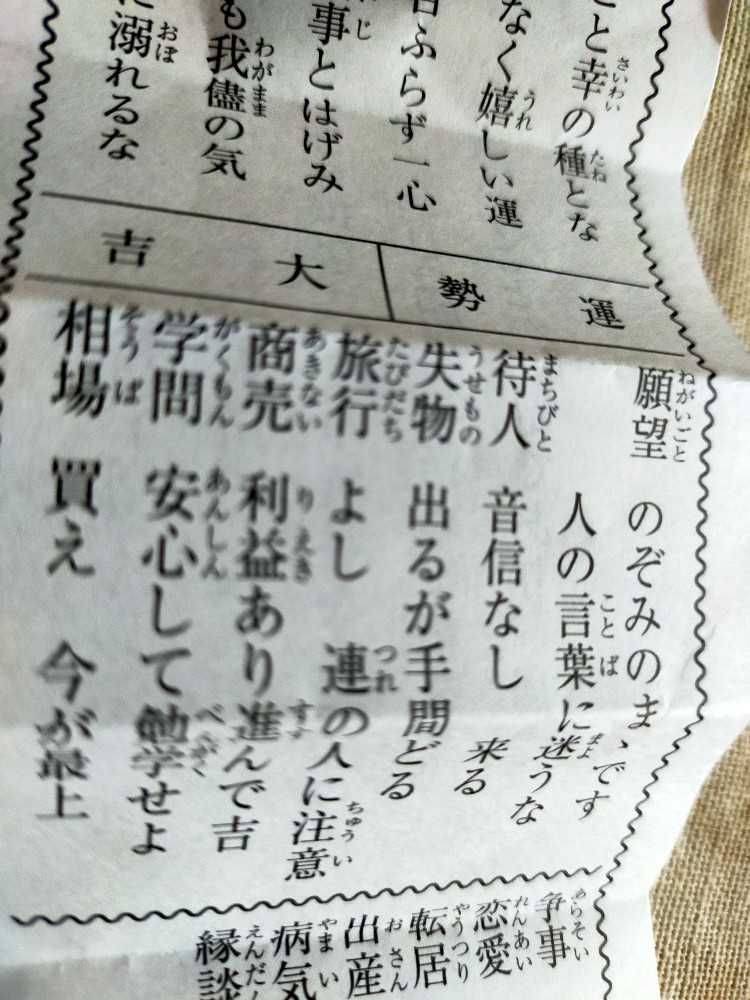 と幸の種とな
なく嬉しい運
ふらず一心
事とはげみ
も我儘の気
に溺れるな
運勢 大吉
願望 のぞみのまゝです
人の言葉に迷うな
待人 音信なし 来る
失物 出るが手間どる
旅行 よし 連の人に注意
商売 利益あり進んで吉
学問 安心して勉学せよ
相場 買え 今が最上
争事
恋愛
転居
出産
病気
縁談